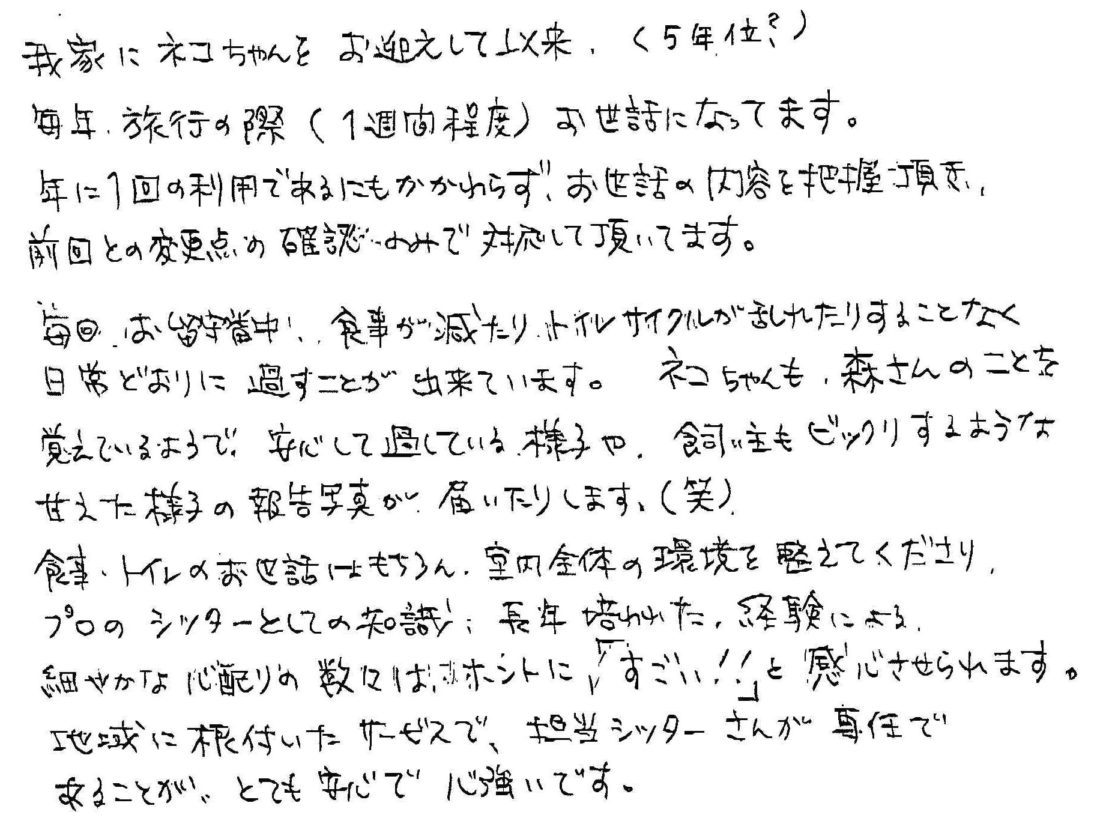 我家にネコちゃんをお迎えして以来、(5年位?)
毎年、旅行の際(1週間程度)お世話になってます。
年に1回の利用であるにもかかわらず、お世話の内容を把握頂き、
前回との変更点の確認のみで対応して頂いてます。
毎回、お留守番中、食事が減たり、トイレサイクルが乱れたりすることなく
日常どおりに過すことが出来ています。 ネコちゃんも、森さんのことを
覚えているようで、安心して過している様子や、飼い主もビックリするような
甘えた様子の報告写真が届いたりします、(笑)
食事・トイレのお世話はもちろん、室内全体の環境を整えてくださり、
プロのシッターとしての知識、長年培われた、経験による、
細やかな心配りの数々には、ホントに「すごい!!」と感心させられます。
地域に根付いたサービスで、担当シッターさんが専任で
あることが、とても安心で心強いです。